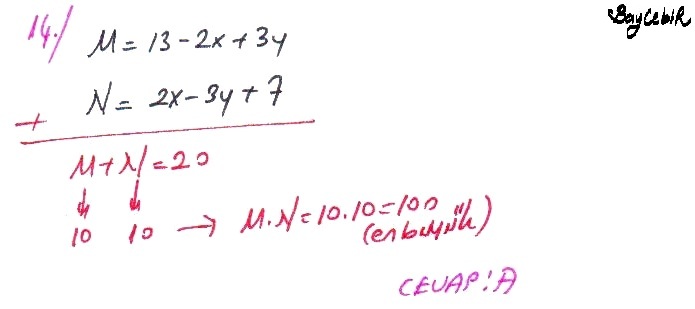 BayCebiR
14.) M = 13 - 2x + 3y
N = 2x - 3y + 7
+
M + N = 20
↓ ↓
10 10 → M.N = 10.10 = 100
(en büyük)
CEVAP: A